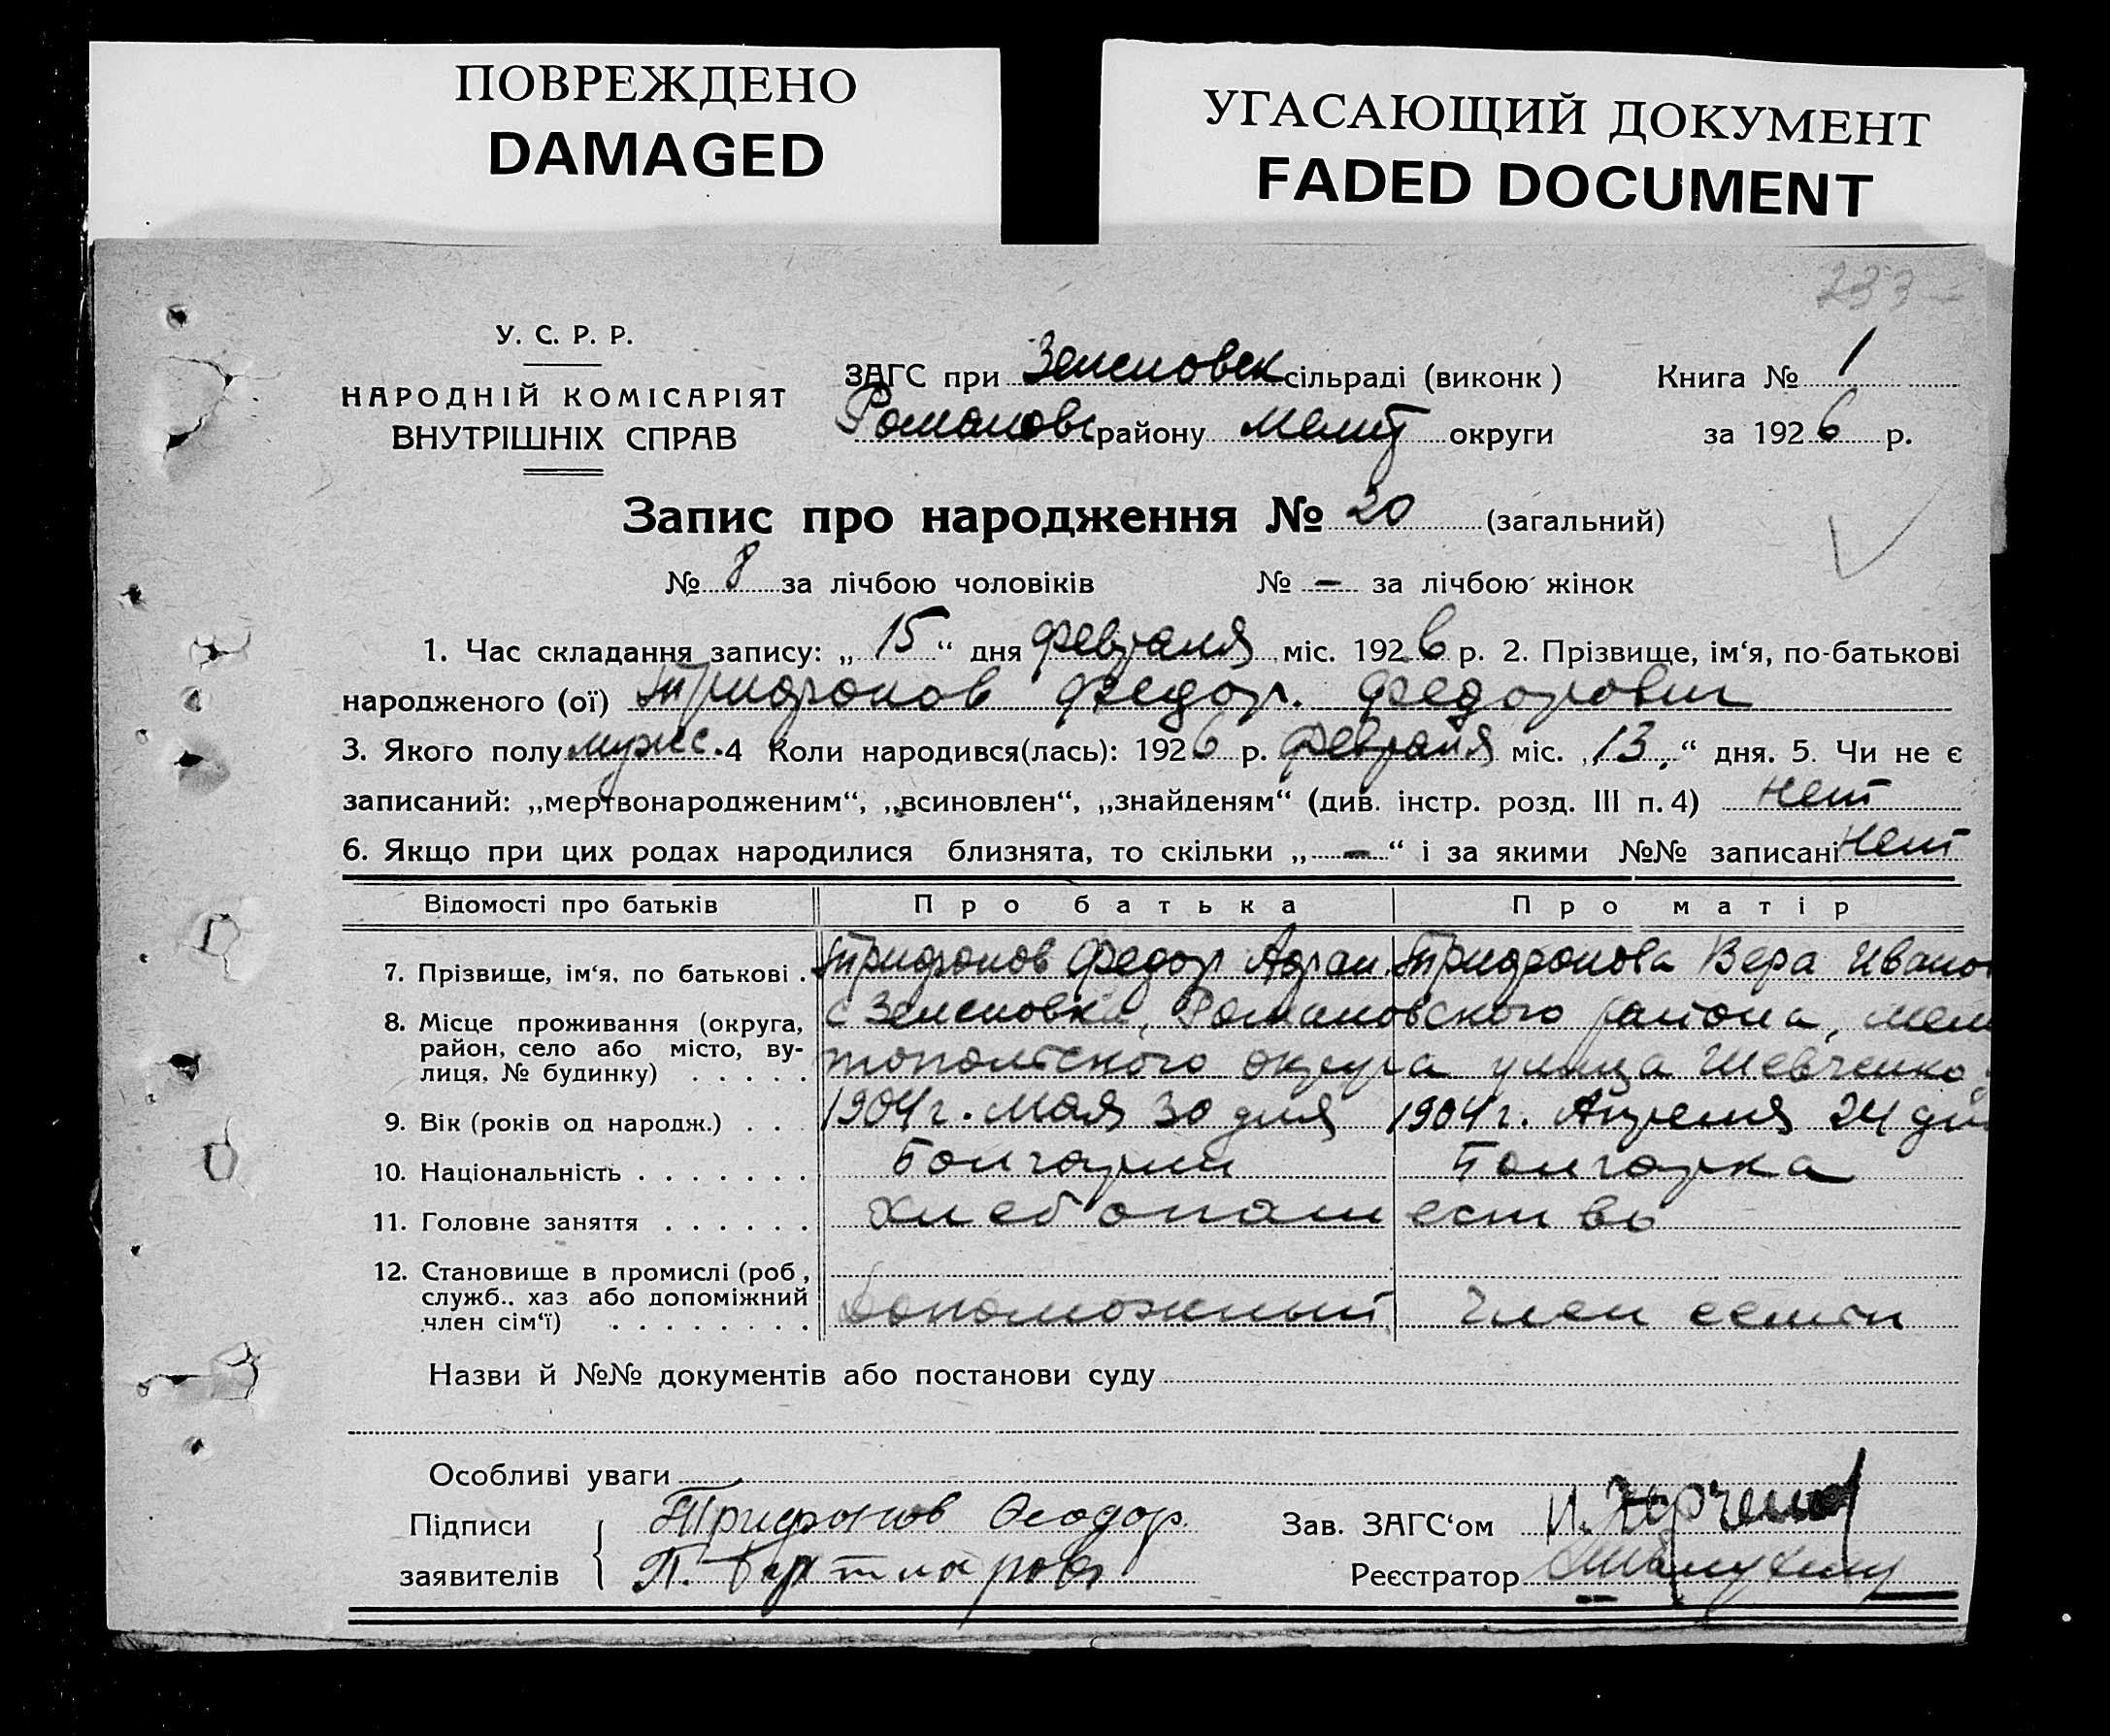 ПОВРЕЖДЕНО
DAMAGED
УГАСАЮЩИЙ ДОКУМЕНТ
FADED DOCUMENT
233
У. С. Р. Р.
НАРОДНІЙ КОМІСАРІЯТ
ВНУТРІШНІХ СПРАВ
ЗАГС при Зеленовск сільраді (виконк)
Романовс району Мелит округи
Книга № 1
за 1926 р.
Запис про народження № 20 (загальний)
№ 8 за лічбою чоловіків № – за лічбою жінок
1. Час складання запису: „15“ дня февраля міс. 1926 р. 2. Прізвище, ім‘я, по-батькові
народженого (ої) Трифонов Федор. Федорович
3. Якого полу мужс. 4 Коли народився(лась): 1926 р. февраля міс. „13„“ дня. 5. Чи не є
записаний: „мертвонародженим“, „всиновлен“, „знайденям“ (див. інстр. розд. III п. 4) нет
6. Якщо при цих родах народилися близнята, то скільки „–“ і за якими №№ записані нет
Відомості про батьків Про батька Про матір
7. Прізвище, ім‘я, по батькові . Трифонов Федор Трифонова Вера Ивано
8. Місце проживання (округа, с Зеленовка, Романовского района, мели
район, село або місто, ву-
лиця, № будинку) . . . . . топольского округа улица Шевченко
9. Вік (років од народж.) . . . 1904 г. Мая 30 дня 1904 г. Апреля 24 дн
10. Національність . . . . . . . Болгарин Болгарка
11. Головне заняття . . . . . . Хлебопашество
12. Становище в промислі (роб,
служб., хаз або допоміжний
член сім‘ї) . . . . . . . . Допоможный член семьи
Назви й №№ документів або постанови суду
Особливі уваги
Підписи Трифонов Феодор. Зав. ЗАГС‘ом
заявителів П. Реєстратор